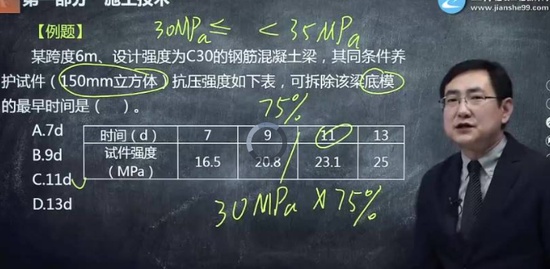 第一部分 施工技术
www.jianshe99.com
30MPa ≤ < 35MPa
【例题】
某跨度6m、设计强度为C30的钢筋混凝土梁，其同条件养
护试件（150mm立方体）抗压强度如下表，可拆除该梁底模
的最早时间是（ ）。
75%
A.7d
B.9d
C.11d
D.13d
时间（d） 7 9 11 13
试件强度（MPa） 16.5 20.8 23.1 25
30MPa×75%